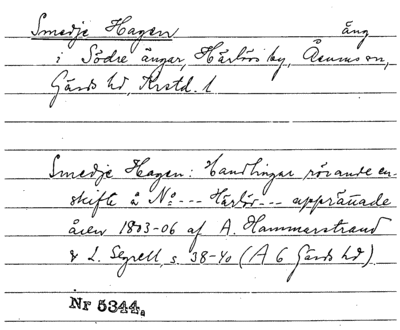 Smedje Hagen äng
i Södre ängar, Härlövs by, Åsums sn,
Gärds hd, Krstd. l
Smedje Hagen: Handlingar rörande en-
skifte å No --- Härlöv --- upprättade
åren 1803-06 af A. Hammarstrand
& L. Segrell, s. 38-40 (A 6 Gärds hd)
Nr 5344a